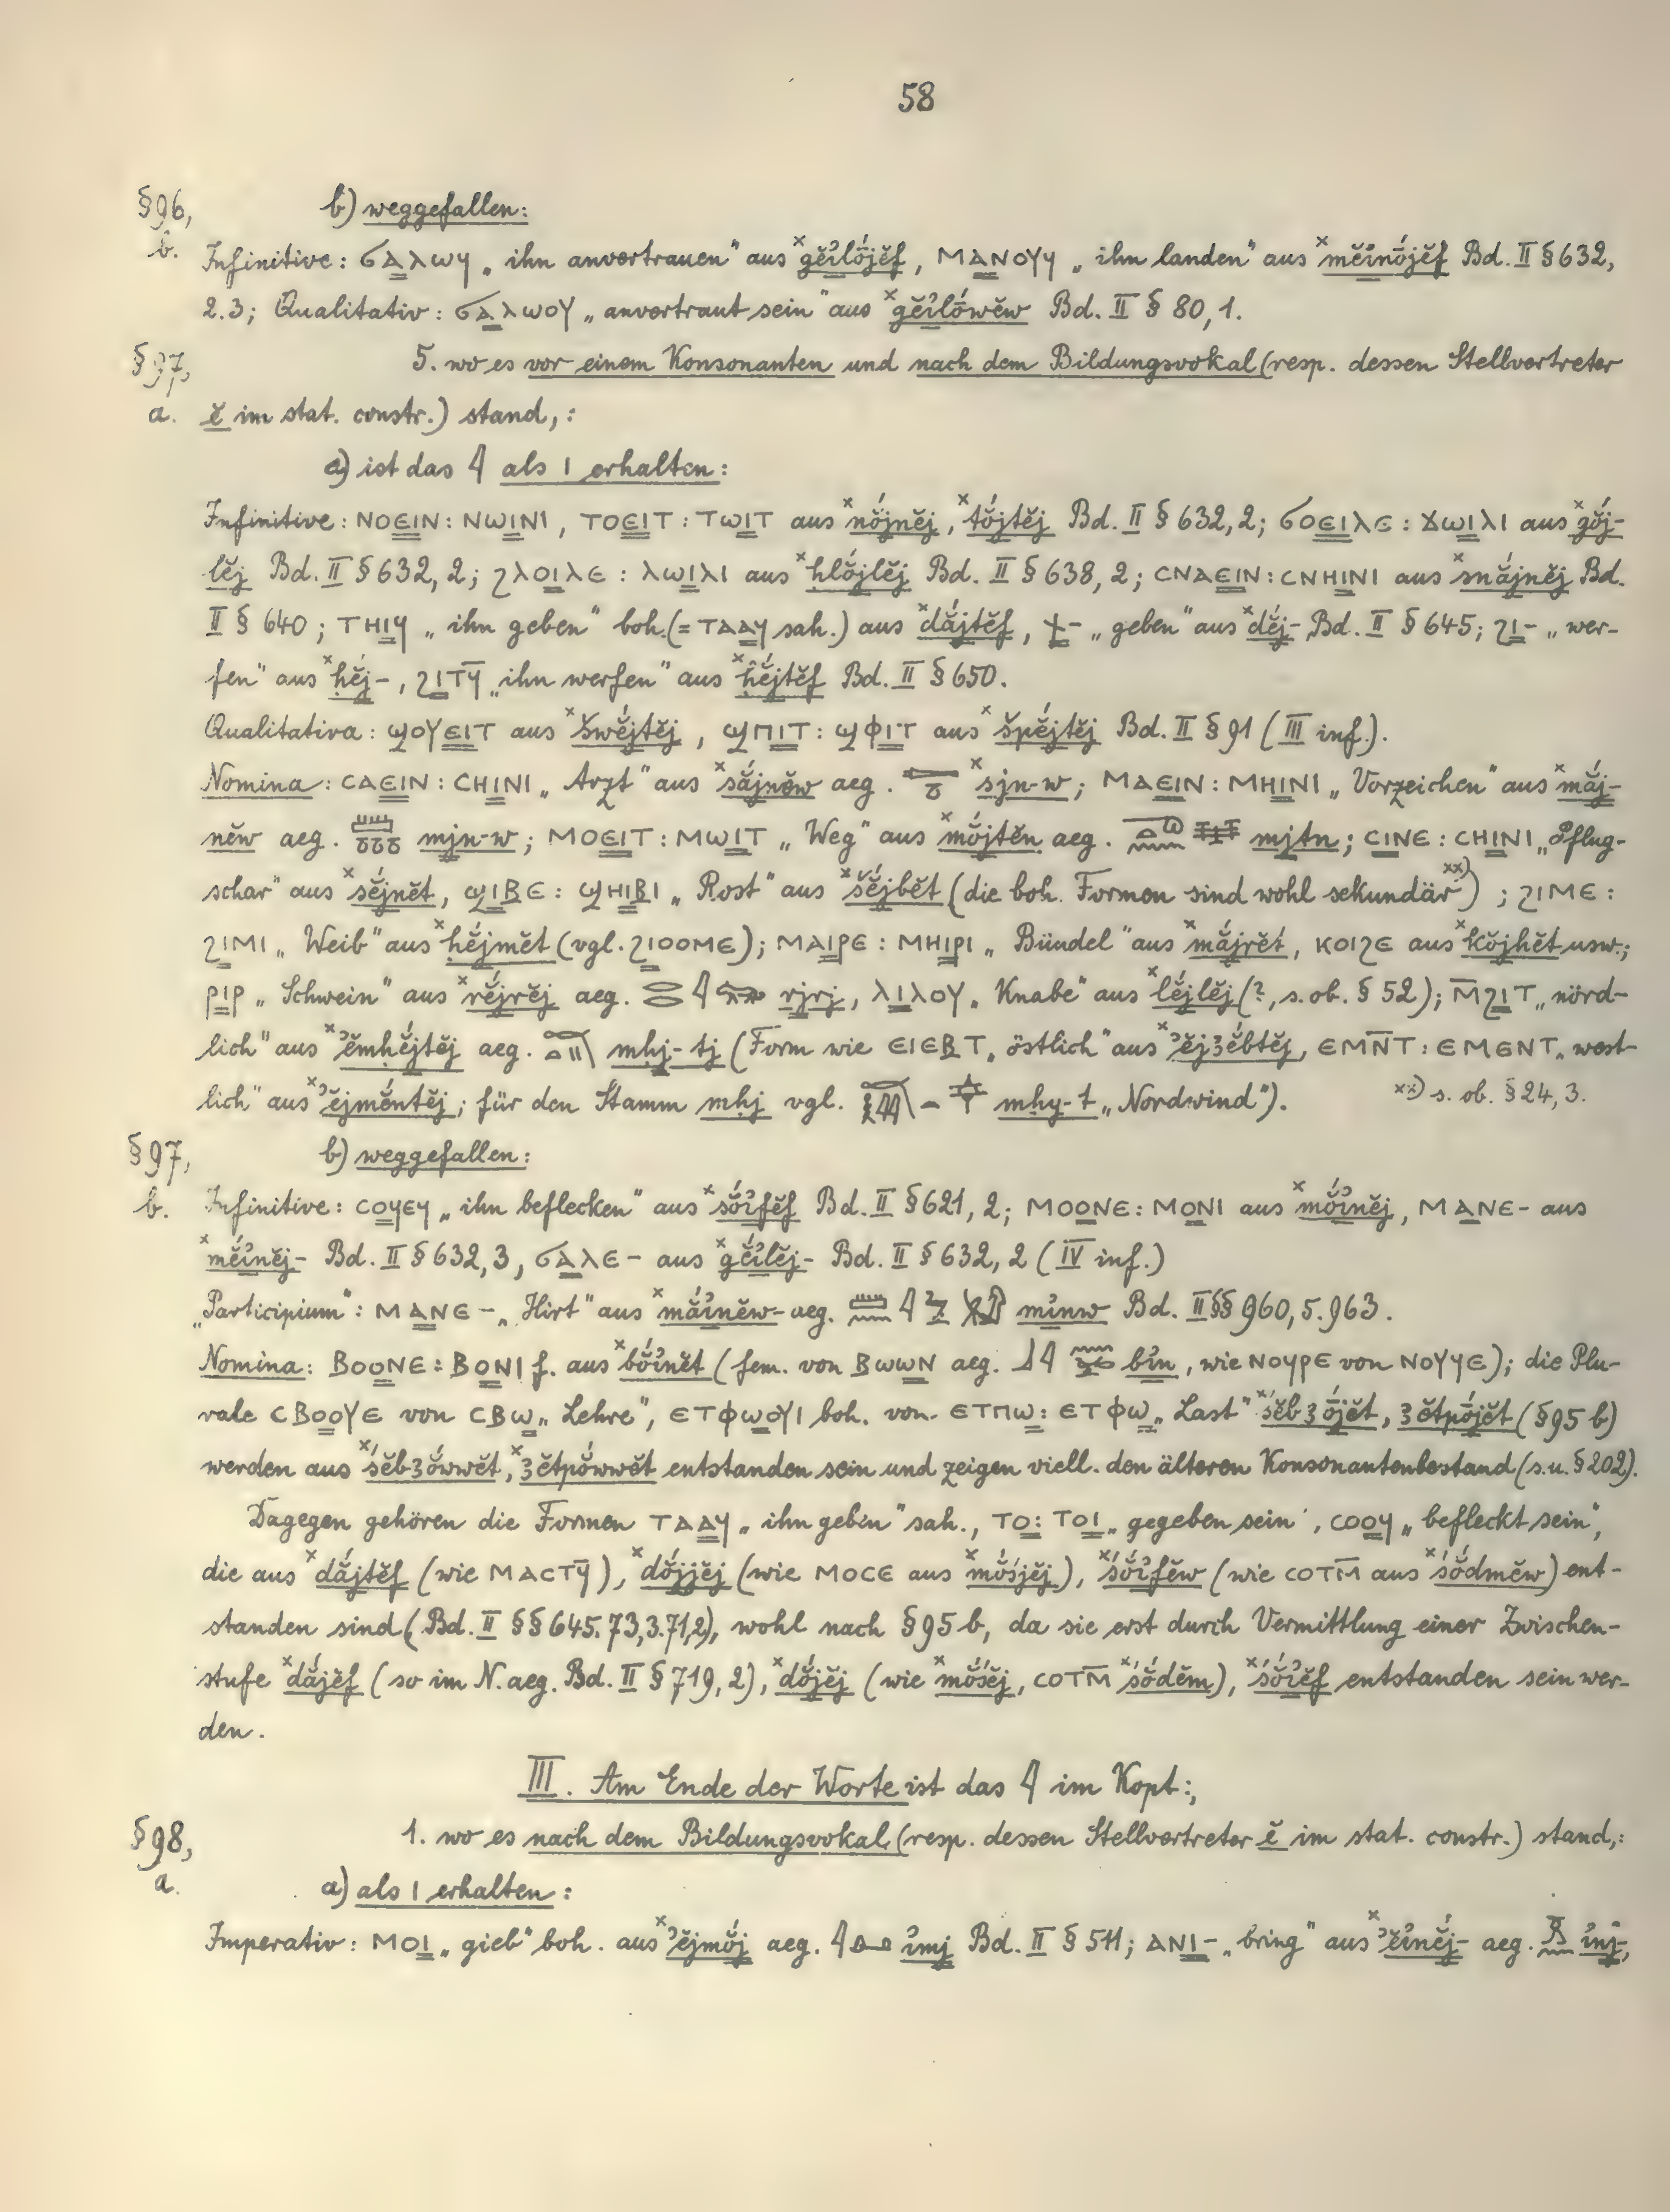 58
§96, b) weggefallen:
b. Infinitive: ϭⲁⲗⲱϥ „ihn anvertrauen" aus ˣgĕı̓lójĕf, ⲙⲁⲛⲟⲩϥ „ihn landen" aus ˣmĕı̓nójĕf Bd. II § 632,
2.3; Qualitativ: ϭⲁⲗⲱⲟⲩ „anvertraut sein" aus ˣgĕı̓lówĕw Bd. II § 80,1.
§97, 5. wo es vor einem Konsonanten und nach dem Bildungsvokal (resp. dessen Stellvertreter
a. ĕ im stat. constr.) stand,:
a) ist das 𓇋 als ⲓ erhalten:
Infinitive: ⲛⲟⲉⲓⲛ: ⲛⲱⲓⲛⲓ, ⲧⲟⲉⲓⲧ: ⲧⲱⲓⲧ aus ˣnŏ́jnĕj, ˣtŏ́jtĕj Bd. II § 632,2; ϭⲟⲉⲓⲗⲉ: ϫⲱⲓⲗⲓ aus ˣgŏ́j-
lĕj Bd. II § 632,2; ϩⲗⲟⲓⲗⲉ: ⲗⲱⲓⲗⲓ aus ˣhlŏ́jlĕj Bd. II § 638,2; ⲥⲛⲁⲉⲓⲛ: ⲥⲛⲏⲓⲛⲓ aus ˣsnắjnĕj Bd.
II § 640; ⲧⲏⲓϥ „ihn geben" boh. (= ⲧⲁⲁϥ sah.) aus ˣdắjtĕf, ϯ- „geben" aus ˣdĕj-, Bd. II § 645; ϩⲓ- „wer-
fen" aus ˣḥĕj-, ϩⲓⲧϥ̄ „ihn werfen" aus ˣḥĕ́jtĕf Bd. II § 650.
Qualitativa: ϣⲟⲩⲉⲓⲧ aus ˣšwĕ́jtĕj, ϣⲡⲓⲧ: ϣⲫⲓⲧ aus ˣšpĕ́jtĕj Bd. II § 91 (III inf.).
Nomina: ⲥⲁⲉⲓⲛ: ⲥⲏⲓⲛⲓ „Arzt" aus ˣsắjnĕw aeg. ˣsjn-w; ⲙⲁⲉⲓⲛ: ⲙⲏⲓⲛⲓ „Vorzeichen" aus ˣmắj-
nĕw aeg. 𓏠𓏌𓏌𓏌 mjn-w; ⲙⲟⲉⲓⲧ: ⲙⲱⲓⲧ „Weg" aus ˣmŏ́jtĕn aeg. mjtn; ⲥⲓⲛⲉ: ⲥⲏⲓⲛⲓ „Pflug-
schar" aus ˣsĕ́jnĕt, ϣⲓⲃⲉ: ϣⲏⲓⲃⲓ „Rost" aus ˣšĕ́jbĕt (die boh. Formen sind wohl sekundär ˣˣ⁾); ϩⲓⲙⲉ:
ϩⲓⲙⲓ „Weib" aus ˣḥĕ́jmĕt (vgl. ϩⲓⲟⲟⲙⲉ); ⲙⲁⲓⲣⲉ: ⲙⲏⲓⲣⲓ „Bündel" aus ˣmắjrĕt, ⲕⲟⲓϩⲉ aus ˣkŏ́jhĕt usw.;
ⲣⲓⲣ „Schwein" aus ˣrĕ́jrĕj aeg. rjrj, ⲗⲓⲗⲟⲩ „Knabe" aus ˣlĕ́jlĕj (?, s. ob. § 52); ⲙ̄ϩⲓⲧ „nörd-
lich" aus ˣʾĕmḥĕ́jtĕj aeg. mḥj-tj (Form wie ⲉⲓⲉⲃⲧ „östlich" aus ˣʾĕjꜣĕ́btĕj, ⲉⲙⲛ̄ⲧ: ⲉⲙⲉⲛⲧ „west-
lich" aus ˣʾĕjmĕ́ntĕj; für den Stamm mḥj vgl. mḥy-t „Nordwind"). ˣˣ⁾ s. ob. § 24,3.
§97, b) weggefallen:
b. Infinitive: ⲥⲟϥⲉϥ „ihn beflecken" aus ˣsŏ́ı̓fĕf Bd. II § 621,2; ⲙⲟⲟⲛⲉ: ⲙⲟⲛⲓ aus ˣmŏ́ı̓nĕj, ⲙⲁⲛⲉ- aus
ˣmĕı̓nĕj- Bd. II § 632,3, ϭⲁⲗⲉ- aus ˣgĕı̓lĕj- Bd. II § 632,2 (IV inf.)
„Participium": ⲙⲁⲛⲉ- „Hirt" aus ˣmắı̓nĕw- aeg. mı̓nw Bd. II §§ 960,5. 963.
Nomina: ⲃⲟⲟⲛⲉ: ⲃⲟⲛⲓ f. aus ˣbŏ́ı̓nĕt (fem. von ⲃⲱⲱⲛ aeg. bı̓n, wie ⲛⲟϥⲣⲉ von ⲛⲟⲩϥⲉ); die Plu-
rale ⲥⲃⲟⲟⲩⲉ von ⲥⲃⲱ „Lehre", ⲉⲧⲫⲱⲟⲩⲓ boh. von ⲉⲧⲡⲱ: ⲉⲧⲫⲱ „Last" ˣśĕbꜣójĕt, ꜣĕtpójĕt (§95 b)
werden aus ˣśĕbꜣŏ́wwĕt, ˣꜣĕtpŏ́wwĕt entstanden sein und zeigen viell. den älteren Konsonantenbestand (s.u. §202).
Dagegen gehören die Formen ⲧⲁⲁϥ „ihn geben" sah., ⲧⲟ: ⲧⲟⲓ „gegeben sein", ⲥⲟⲟϥ „befleckt sein",
die aus ˣdắjtĕf (wie ⲙⲁⲥⲧϥ̄), ˣdŏ́jjĕj (wie ⲙⲟⲥⲉ aus ˣmŏ́śjĕj), ˣśŏ́ı̓fĕw (wie ⲥⲟⲧⲙ̄ aus ˣśŏ́dmĕw) ent-
standen sind (Bd. II §§ 645. 73,3. 71,2), wohl nach § 95 b, da sie erst durch Vermittlung einer Zwischen-
stufe ˣdắjĕf (so im N. aeg. Bd. II § 719,2), ˣdŏ́jĕj (wie ˣmŏ́śĕj, ⲥⲟⲧⲙ̄ ˣśŏ́dĕm), ˣśŏ́ı̓ĕf entstanden sein wer-
den.
III. Am Ende der Worte ist das 𓇋 im Kopt:,
§98, 1. wo es nach dem Bildungsvokal (resp. dessen Stellvertreter ĕ im stat. constr.) stand,:
a. a) als ⲓ erhalten:
Imperativ: ⲙⲟⲓ „gieb" boh. aus ˣʾĕjmŏ́j aeg. ı̓mj Bd. II § 511; ⲁⲛⲓ- „bring" aus ˣʾĕı̓nĕ́j- aeg. ı̓nj-,